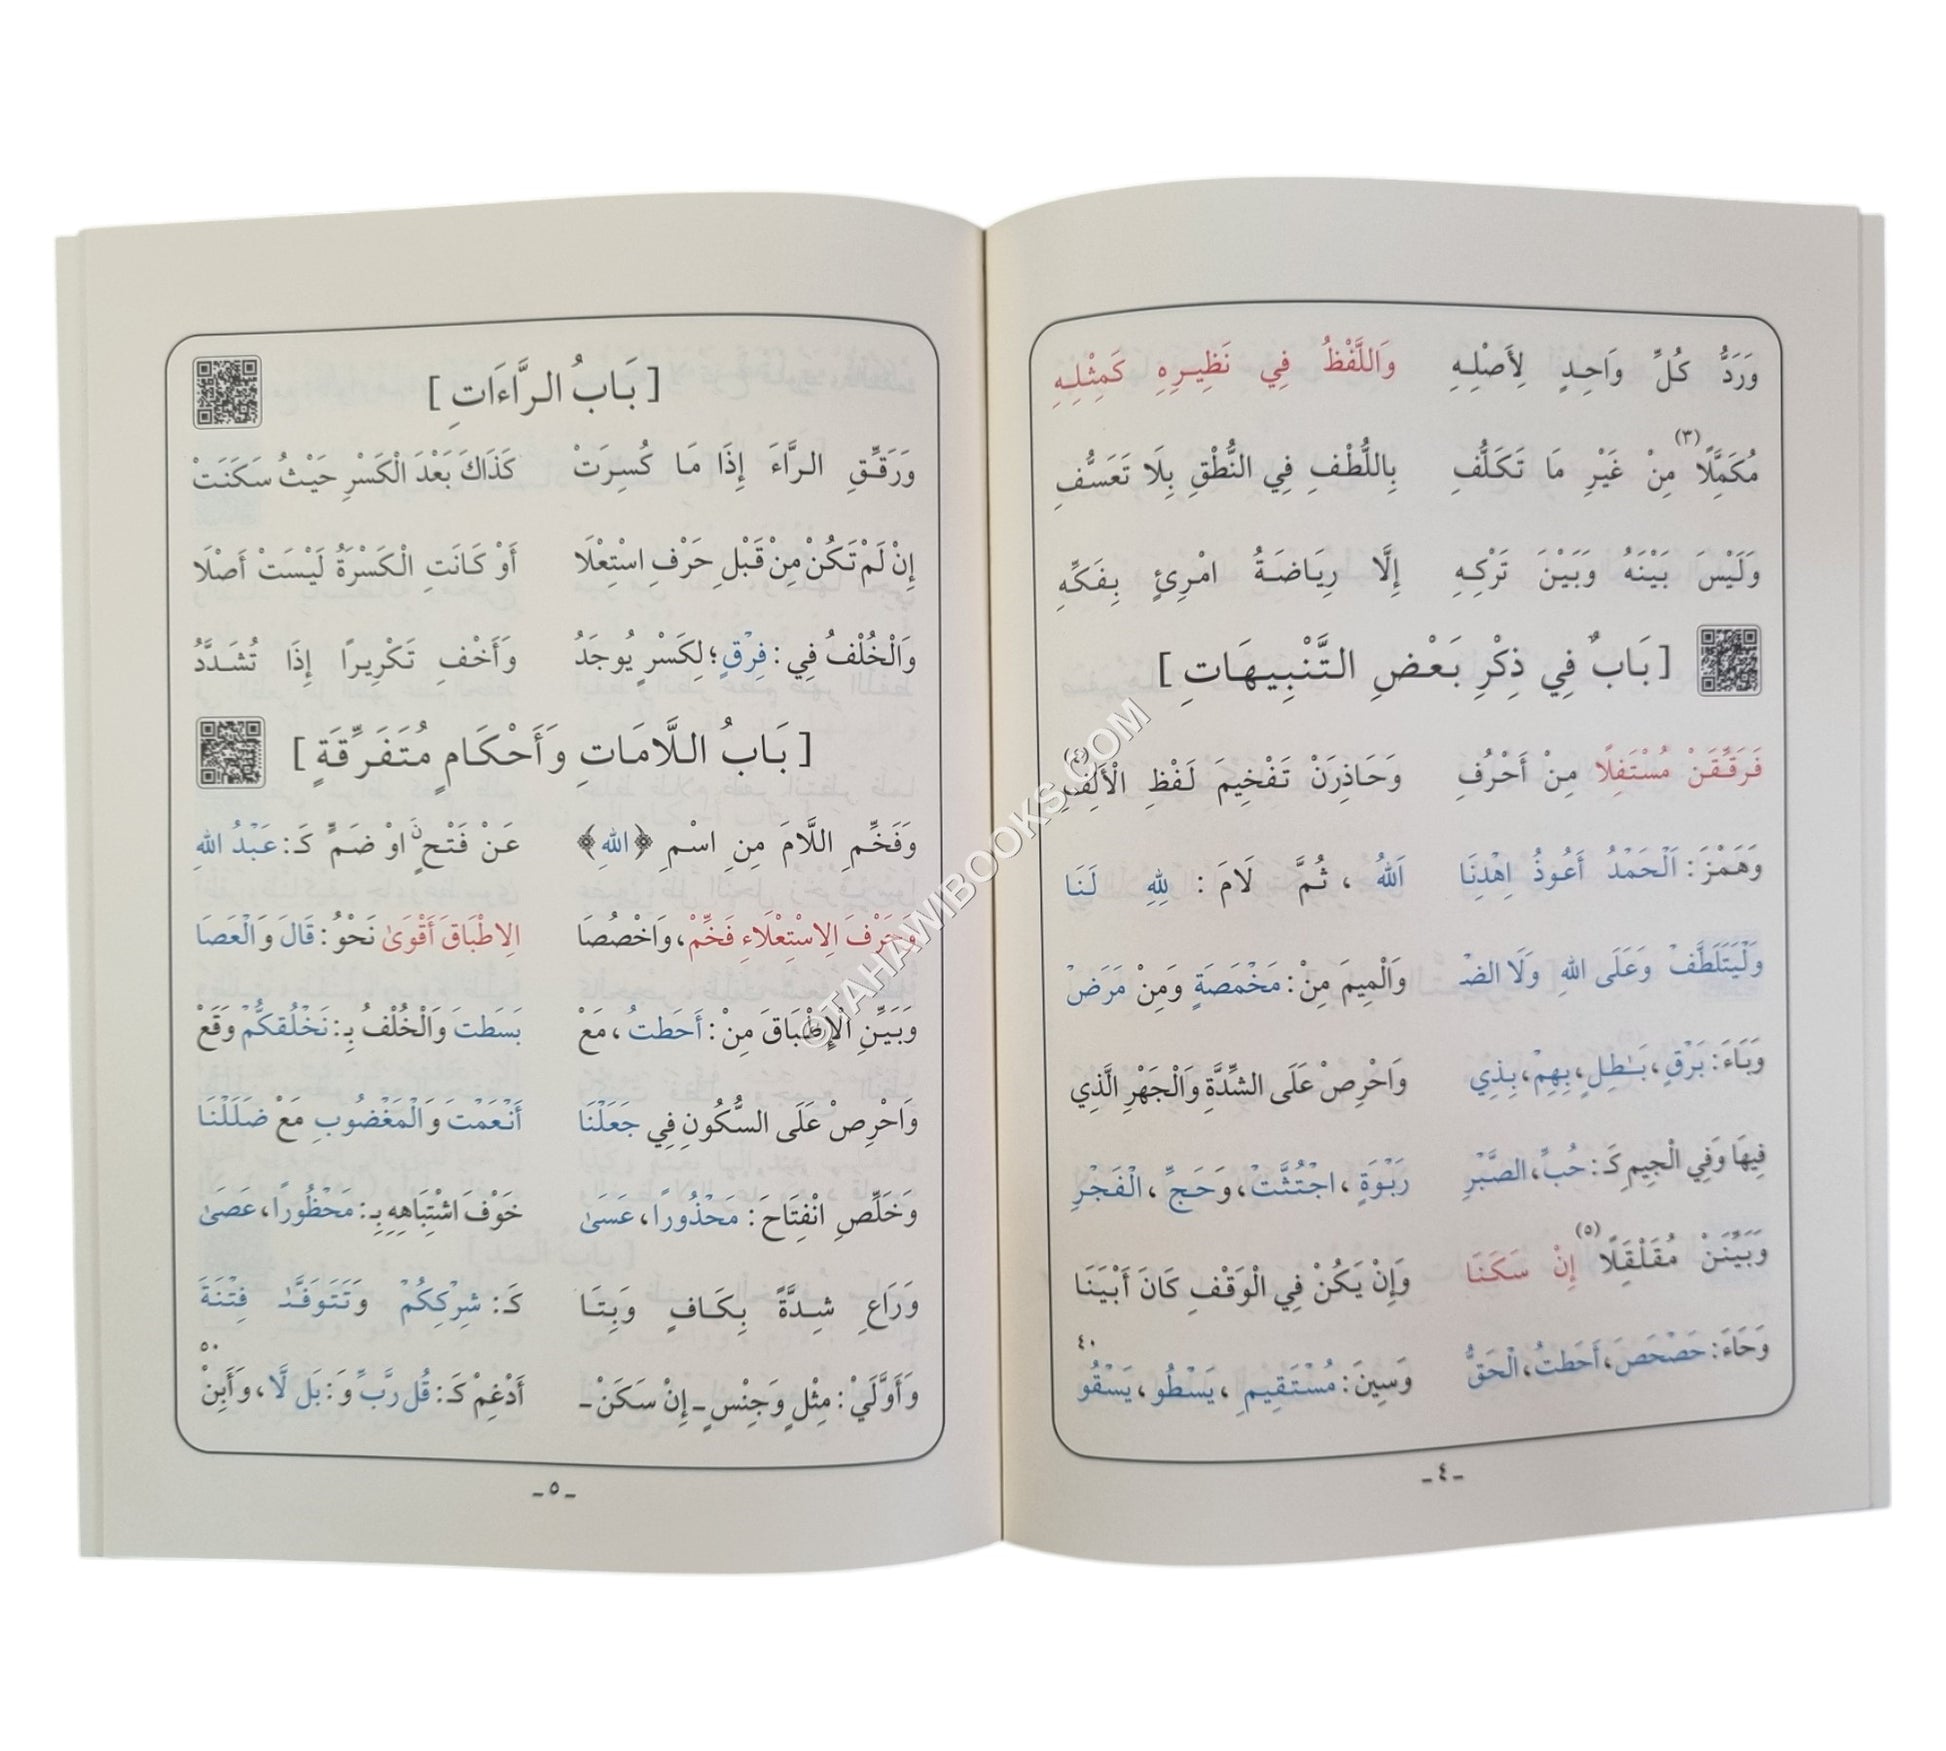 وَرَدُّ كُلِّ وَاحِدٍ لِأَصْلِهِ وَاللَّفْظُ فِي نَظِيرِهِ كَمِثْلِهِ
مُكَمَّلًا (٣) مِنْ غَيْرِ مَا تَكَلُّفِ بِاللُّطْفِ فِي النُّطْقِ بِلَا تَعَسُّفِ
وَلَيْسَ بَيْنَهُ وَبَيْنَ تَرْكِهِ إِلَّا رِيَاضَةُ امْرِئٍ بِفَكِّهِ
[ بَابٌ فِي ذِكْرِ بَعْضِ التَّنْبِيهَاتِ ]
فَرَقِّقَنْ مُسْتَفِلًا مِنْ أَحْرُفِ وَحَاذِرَنْ تَفْخِيمَ لَفْظِ الْأَلِفِ (٤)
وَهَمْزَ: اَلْحَمْدُ أَعُوذُ اِهْدِنَا اَللهُ ، ثُمَّ لَامَ : لِلهِ لَنَا
وَلْيَتَلَطَّفْ وَعَلَى اللهِ وَلَا الضْـ وَالْمِيمَ مِنْ: مَخْمَصَةٍ وَمِنْ مَرَضْ
وَبَاءَ: بَرْقٍ، بَـٰطِلٍ، بِهِمْ، بِذِي وَاحْرِصْ عَلَى الشِّدَّةِ وَالْجَهْرِ الَّذِي
فِيهَا وَفِي الْجِيمِ كَـ: حُبِّ، الصَّبْرِ رَبْوَةٍ ، اجْتُثَّتْ، وَحَجِّ ، الْفَجْرِ
وَبَيِّنَنْ مُقَلْقِلًا (٥) إِنْ سَكَنَا وَإِنْ يَكُنْ فِي الْوَقْفِ كَانَ أَبْيَنَا
وَحَاءَ: حَصْحَصَ، أَحَطتُ، الْحَقُّ وَسِينَ: مُسْتَقِيمِ ، يَسْطُو ، يَسْقُو ٤٠
ـ ٤ ـ
[ بَابُ الرَّاءَاتِ ]
وَرَقِّقِ الرَّاءَ إِذَا مَا كُسِرَتْ كَذَاكَ بَعْدَ الْكَسْرِ حَيْثُ سَكَنَتْ
إِنْ لَمْ تَكُنْ مِنْ قَبْلِ حَرْفِ اسْتِعْلَا أَوْ كَانَتِ الْكَسْرَةُ لَيْسَتْ أَصْلَا
وَالْخُلْفُ فِي: فِرْقٍ؛ لِكَسْرٍ يُوجَدُ وَأَخْفِ تَكْرِيرًا إِذَا تُشَدَّدُ
[ بَابُ اللَّامَاتِ وَأَحْكَامٍ مُتَفَرِّقَةٍ ]
وَفَخِّمِ اللَّامَ مِنِ اسْمِ ﴿اللهِ﴾ عَنْ فَتْحٍ نَ اوْ ضَمٍّ كَـ: عَبْدُ اللهِ
وَحَرْفَ الِاسْتِعْلَاءِ فَخِّمْ، وَاخْصُصَا الِاطْبَاقَ أَقْوَىٰ نَحْوُ: قَالَ وَالْعَصَا
وَبَيِّنِ الْإِطْبَاقَ مِنْ: أَحَطتُ، مَعْ بَسَطتَ وَالْخُلْفُ بِـ: نَخْلُقكُّمْ وَقَعْ
وَاحْرِصْ عَلَى السُّكُونِ فِي جَعَلْنَا أَنْعَمْتَ وَالْمَغْضُوبِ مَعْ ضَلَلْنَا
وَخَلِّصِ انْفِتَاحَ: مَحْذُورًا، عَسَىٰ خَوْفَ اشْتِبَاهِهِ بِـ: مَحْظُورًا، عَصَىٰ
وَرَاعِ شِدَّةً بِكَافٍ وَبِتَا كَـ: شِرْكِكُمْ وَتَتَوَفَّـىٰ فِتْنَةَ
وَأَوَّلَيْ: مِثْلٍ وَجِنْسٍ ـ إِنْ سَكَنْ ـ أَدْغِمْ كَـ: قُل رَّبِّ وَ: بَل لَّا، وَأَبِنْ ٥٠
ـ ٥ ـ
©TAHAWIBOOKS.COM